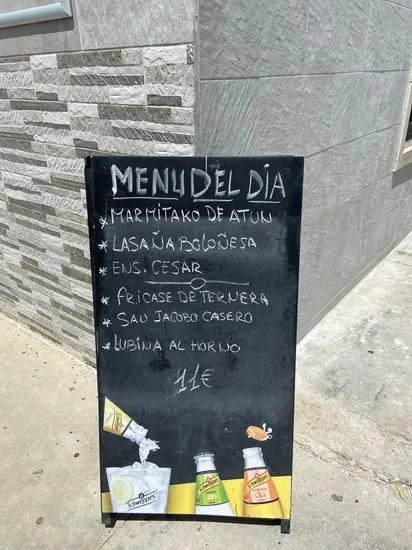 MENU DEL DÍA
* MARMITAKO DE ATUN
* LASAÑA BOLOÑESA
* ENS. CESAR
* FRICASE DE TERNERA
* SAN JACOBO CASERO
* LUBINA AL HORNO
11€
Schweppes
Schweppes
Schweppes
Schweppes